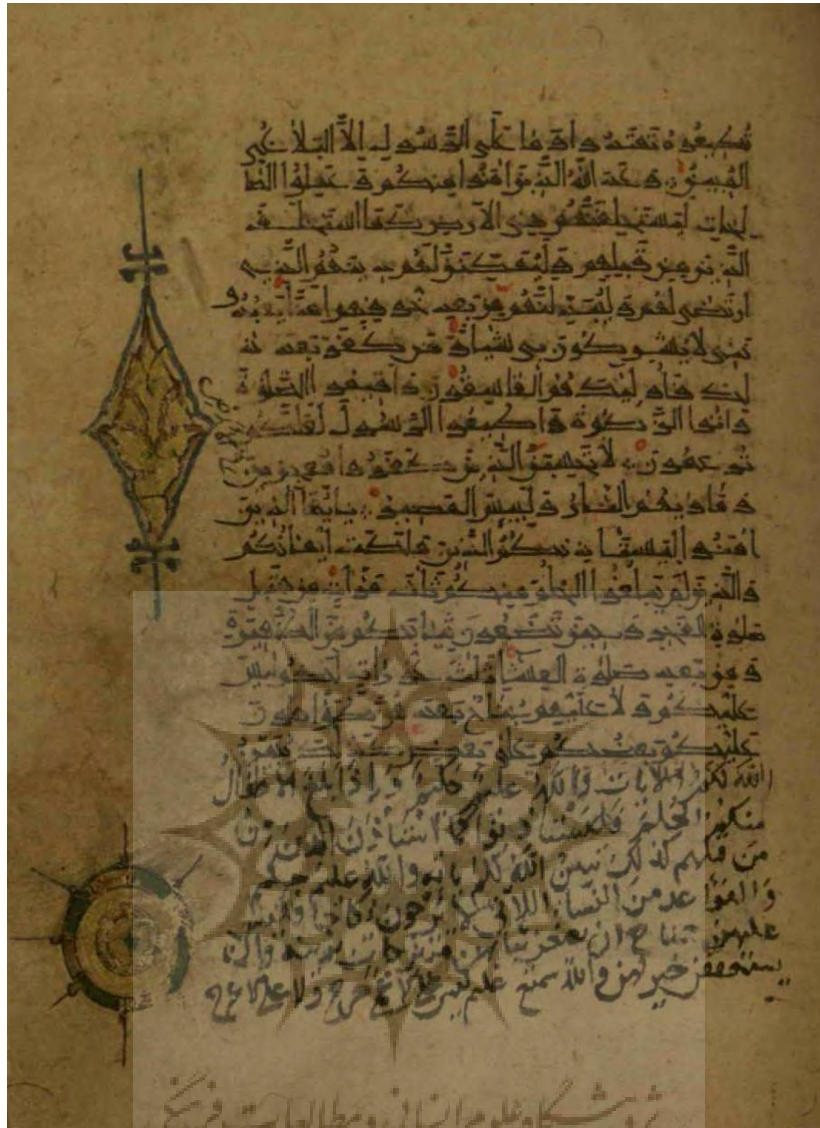 تطيعوه تهتدوا وما على الرسول إلا البلاغ
المبين وعد الله الذين امنوا منكم وعملوا الصا
لحات ليستخلفنهم في الارض كما استخلف
الذين من قبلهم وليمكنن لهم دينهم الذي
ارتضى لهم وليبدلنهم من بعد خوفهم امنا يعبدو
ننى لا يشركون بى شيئا ومن كفر بعد ذ
لك فاولئك هم الفاسقون واقيموا الصلوة
واتوا الزكوة واطيعوا الرسول لعلكم
ترحمون لا تحسبن الذين كفروا معجزين
وماويهم النار ولبيس المصير يايها الذين
امنوا ليستاذنكم الذين ملكت ايمانكم
والذين لم يبلغوا الحلم منكم ثلث مرات من قبل
صلوة الفجر وحين تضعون ثيابكم من الظهيرة
ومن بعد صلوة العشا ثلث عورات لكم ليس
عليكم ولا عليهم جناح بعدهن طوافون
عليكم بعضكم على بعض كذلك يبين
الله لكم الايات والله عليم حكيم واذا بلغ الاطفال
منكم الحلم فليستاذنوا كما استاذن الذين
من قبلهم كذلك يبين الله لكم اياته والله عليم حكيم
والقواعد من النسا اللاتي لا يرجون نكاحا فليس
عليهن جناح ان يضعن ثيابهن غير متبرجات بزينة وان
يستعففن خير لهن والله سميع عليم ليس على الاعمى حرج ولا على الاعرج
پژوهشگاه علوم انسانی و مطالعات فرهنگی